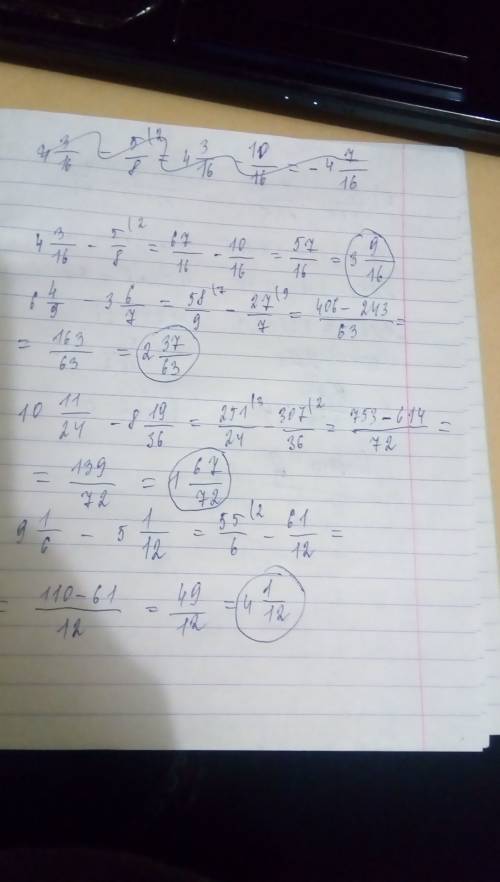 4 3/16 - 5/8 (2 = 4 3/16 - 10/16 = - 4 7/16
4 3/16 - 5/8 (2 = 67/16 - 10/16 = 57/16 = 3 9/16
6 4/9 - 3 6/7 = 58/9 (7 - 27/7 (9 = 406-243/63 =
= 163/63 = 2 37/63
10 11/24 - 8 19/36 = 251/24 (3 - 307/36 (2 = 753-614/72 =
= 139/72 = 1 67/72
9 1/6 - 5 1/12 = 55/6 (2 - 61/12 =
= 110-61/12 = 49/12 = 4 1/12